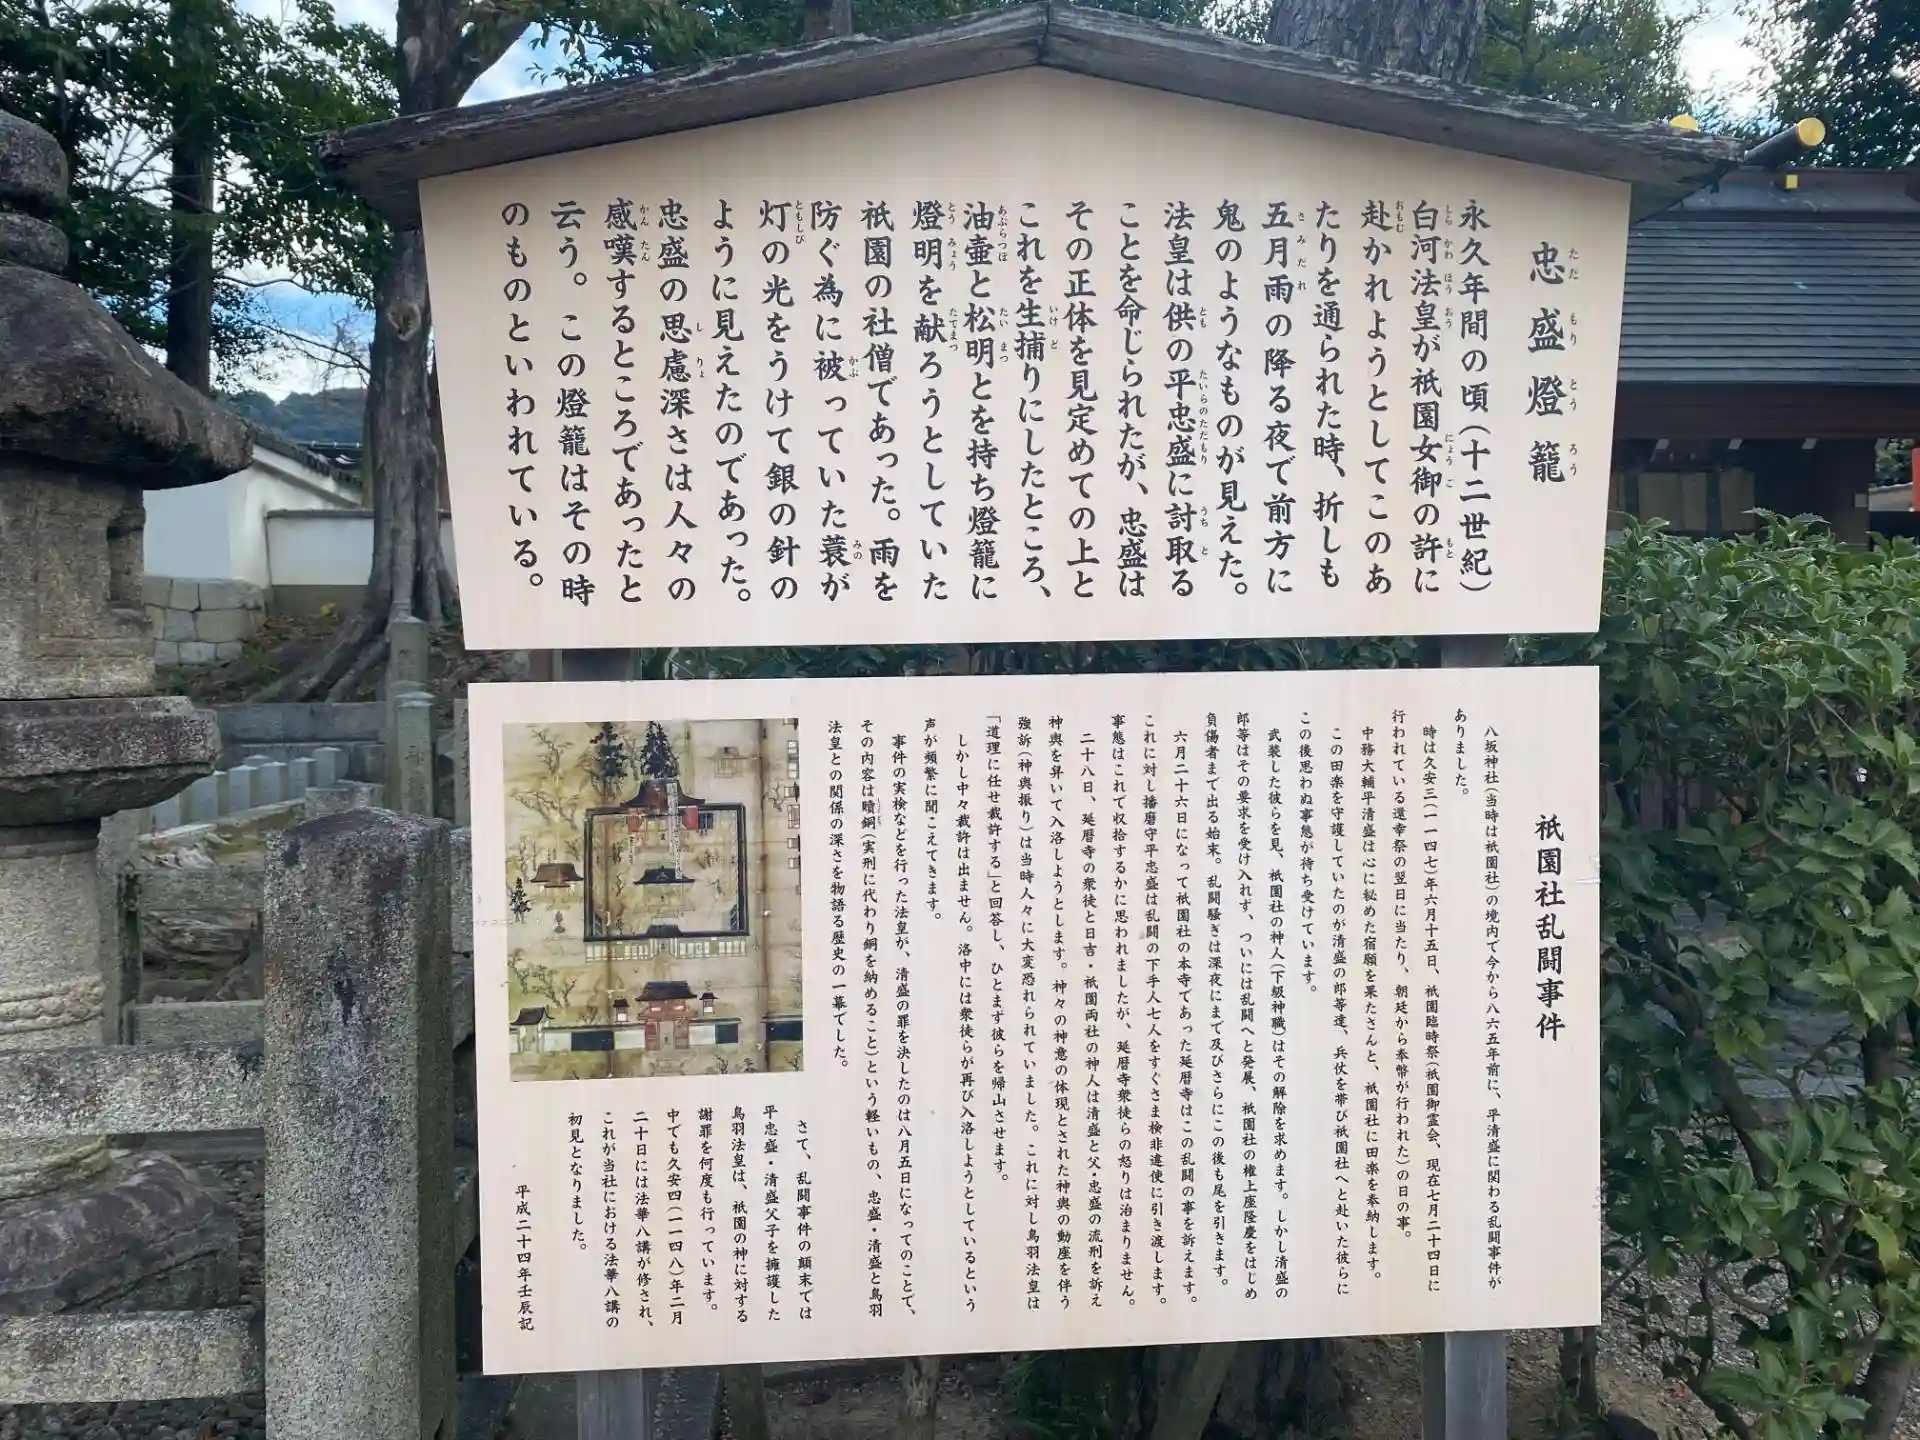 忠盛燈籠
ただもりとうろう
永久年間の頃(十二世紀)
白河法皇が祇園女御の許に
しらかわほうおう にょうご もと
赴かれようとしてこのあ
おもむ
たりを通られた時、折しも
五月雨の降る夜で前方に
さみだれ
鬼のようなものが見えた。
法皇は供の平忠盛に討取る
とも たいらのただもり うちと
ことを命じられたが、忠盛は
その正体を見定めての上と
これを生捕りにしたところ、
いけど
油壷と松明とを持ち燈籠に
あぶらつぼ たいまつ
燈明を献ろうとしていた
とうみょう たてまつ
祇園の社僧であった。雨を
防ぐ為に被っていた蓑が
かぶ みの
灯の光をうけて銀の針の
ともしび
ように見えたのであった。
忠盛の思慮深さは人々の
しりょ
感嘆するところであったと
かんたん
云う。この燈籠はその時
のものといわれている。
祇園社乱闘事件
八坂神社(当時は祇園社)の境内で今から八六五年前に、平清盛に関わる乱闘事件が
ありました。
時は久安三(一一四七)年六月十五日、祇園臨時祭(祇園御霊会、現在七月二十四日に
行われている還幸祭の翌日に当たり、朝廷から奉幣が行われた)の日の事。
中務大輔平清盛は心に秘めた宿願を果たさんと、祇園社に田楽を奉納します。
この田楽を守護していたのが清盛の郎等達、兵仗を帯び祇園社へと赴いた彼らに
この後思わぬ事態が待ち受けています。
武装した彼らを見、祇園社の神人(下級神職)はその解除を求めます。しかし清盛の
郎等はその要求を受け入れず、ついには乱闘へと発展、祇園社の権上座隆慶をはじめ
負傷者まで出る始末。乱闘騒ぎは深夜にまで及びさらにこの後も尾を引きます。
六月二十六日になって祇園社の本寺であった延暦寺はこの乱闘の事を訴えます。
これに対し播磨守平忠盛は乱闘の下手人七人をすぐさま検非違使に引き渡します。
事態はこれで収拾するかに思われましたが、延暦寺衆徒らの怒りは治まりません。
二十八日、延暦寺の衆徒と日吉・祇園両社の神人は清盛と父・忠盛の流刑を訴え
神輿を舁いて入洛しようとします。神々の神意の体現とされた神輿の動座を伴う
強訴(神輿振り)は当時人々に大変恐れられていました。これに対し鳥羽法皇は
「道理に任せ裁許する」と回答し、ひとまず彼らを帰山させます。
しかし中々裁許は出ません。洛中には衆徒らが再び入洛しようとしているという
声が頻繁に聞こえてきます。
事件の実検などを行った法皇が、清盛の罪を決したのは八月五日になってのことで、
その内容は贖銅(実刑に代わり銅を納めること)という軽いもの、忠盛・清盛と鳥羽
法皇との関係の深さを物語る歴史の一幕でした。
さて、乱闘事件の顛末では
平忠盛・清盛父子を擁護した
鳥羽法皇は、祇園の神に対する
謝罪を何度も行っています。
中でも久安四(一一四八)年二月
二十日には法華八講が修され、
これが当社における法華八講の
初見となりました。
平成二十四年壬辰記